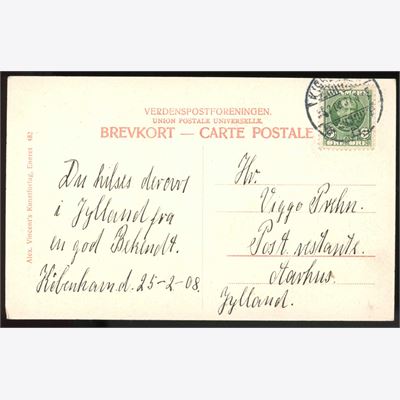 VERDENSPOSTFORENINGEN.
UNION POSTALE UNIVERSELLE.
BREVKORT — CARTE POSTALE
Alex. Vincent's Kunstforlag, Eneret 482
Du hilses derovre
i Jylland fra
en god Bekendt.
København d. 25-2-08.
Hr.
Viggo
Post restante.
Aarhus.
Jylland.
ØRE ØRE